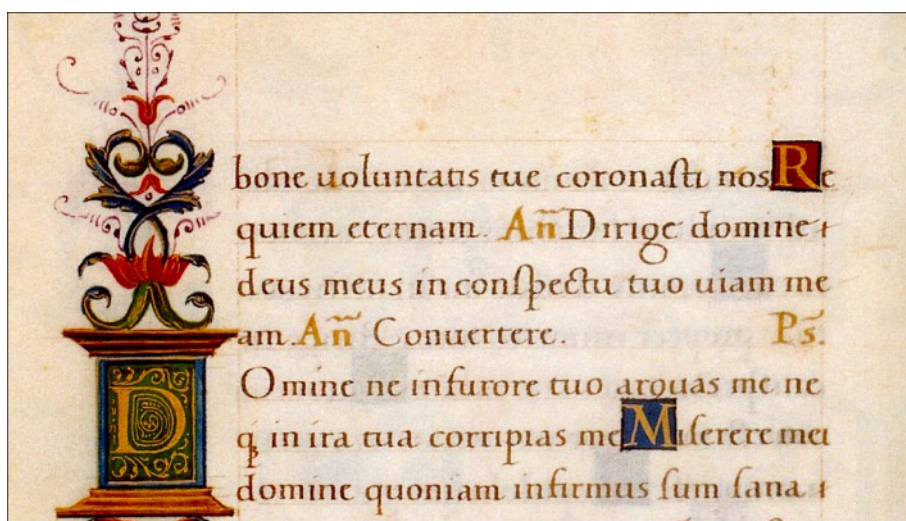 bone uoluntatis tue coronaſti nos Re
quiem eternam. An̄ Dirige domine
deus meus in conſpectu tuo uiam me
am. An̄ Conuertere. Ps̄.
DOmine ne in furore tuo arguas me ne
q̨ in ira tua corripias me Miſerere mei
domine quoniam infirmus ſum ſana